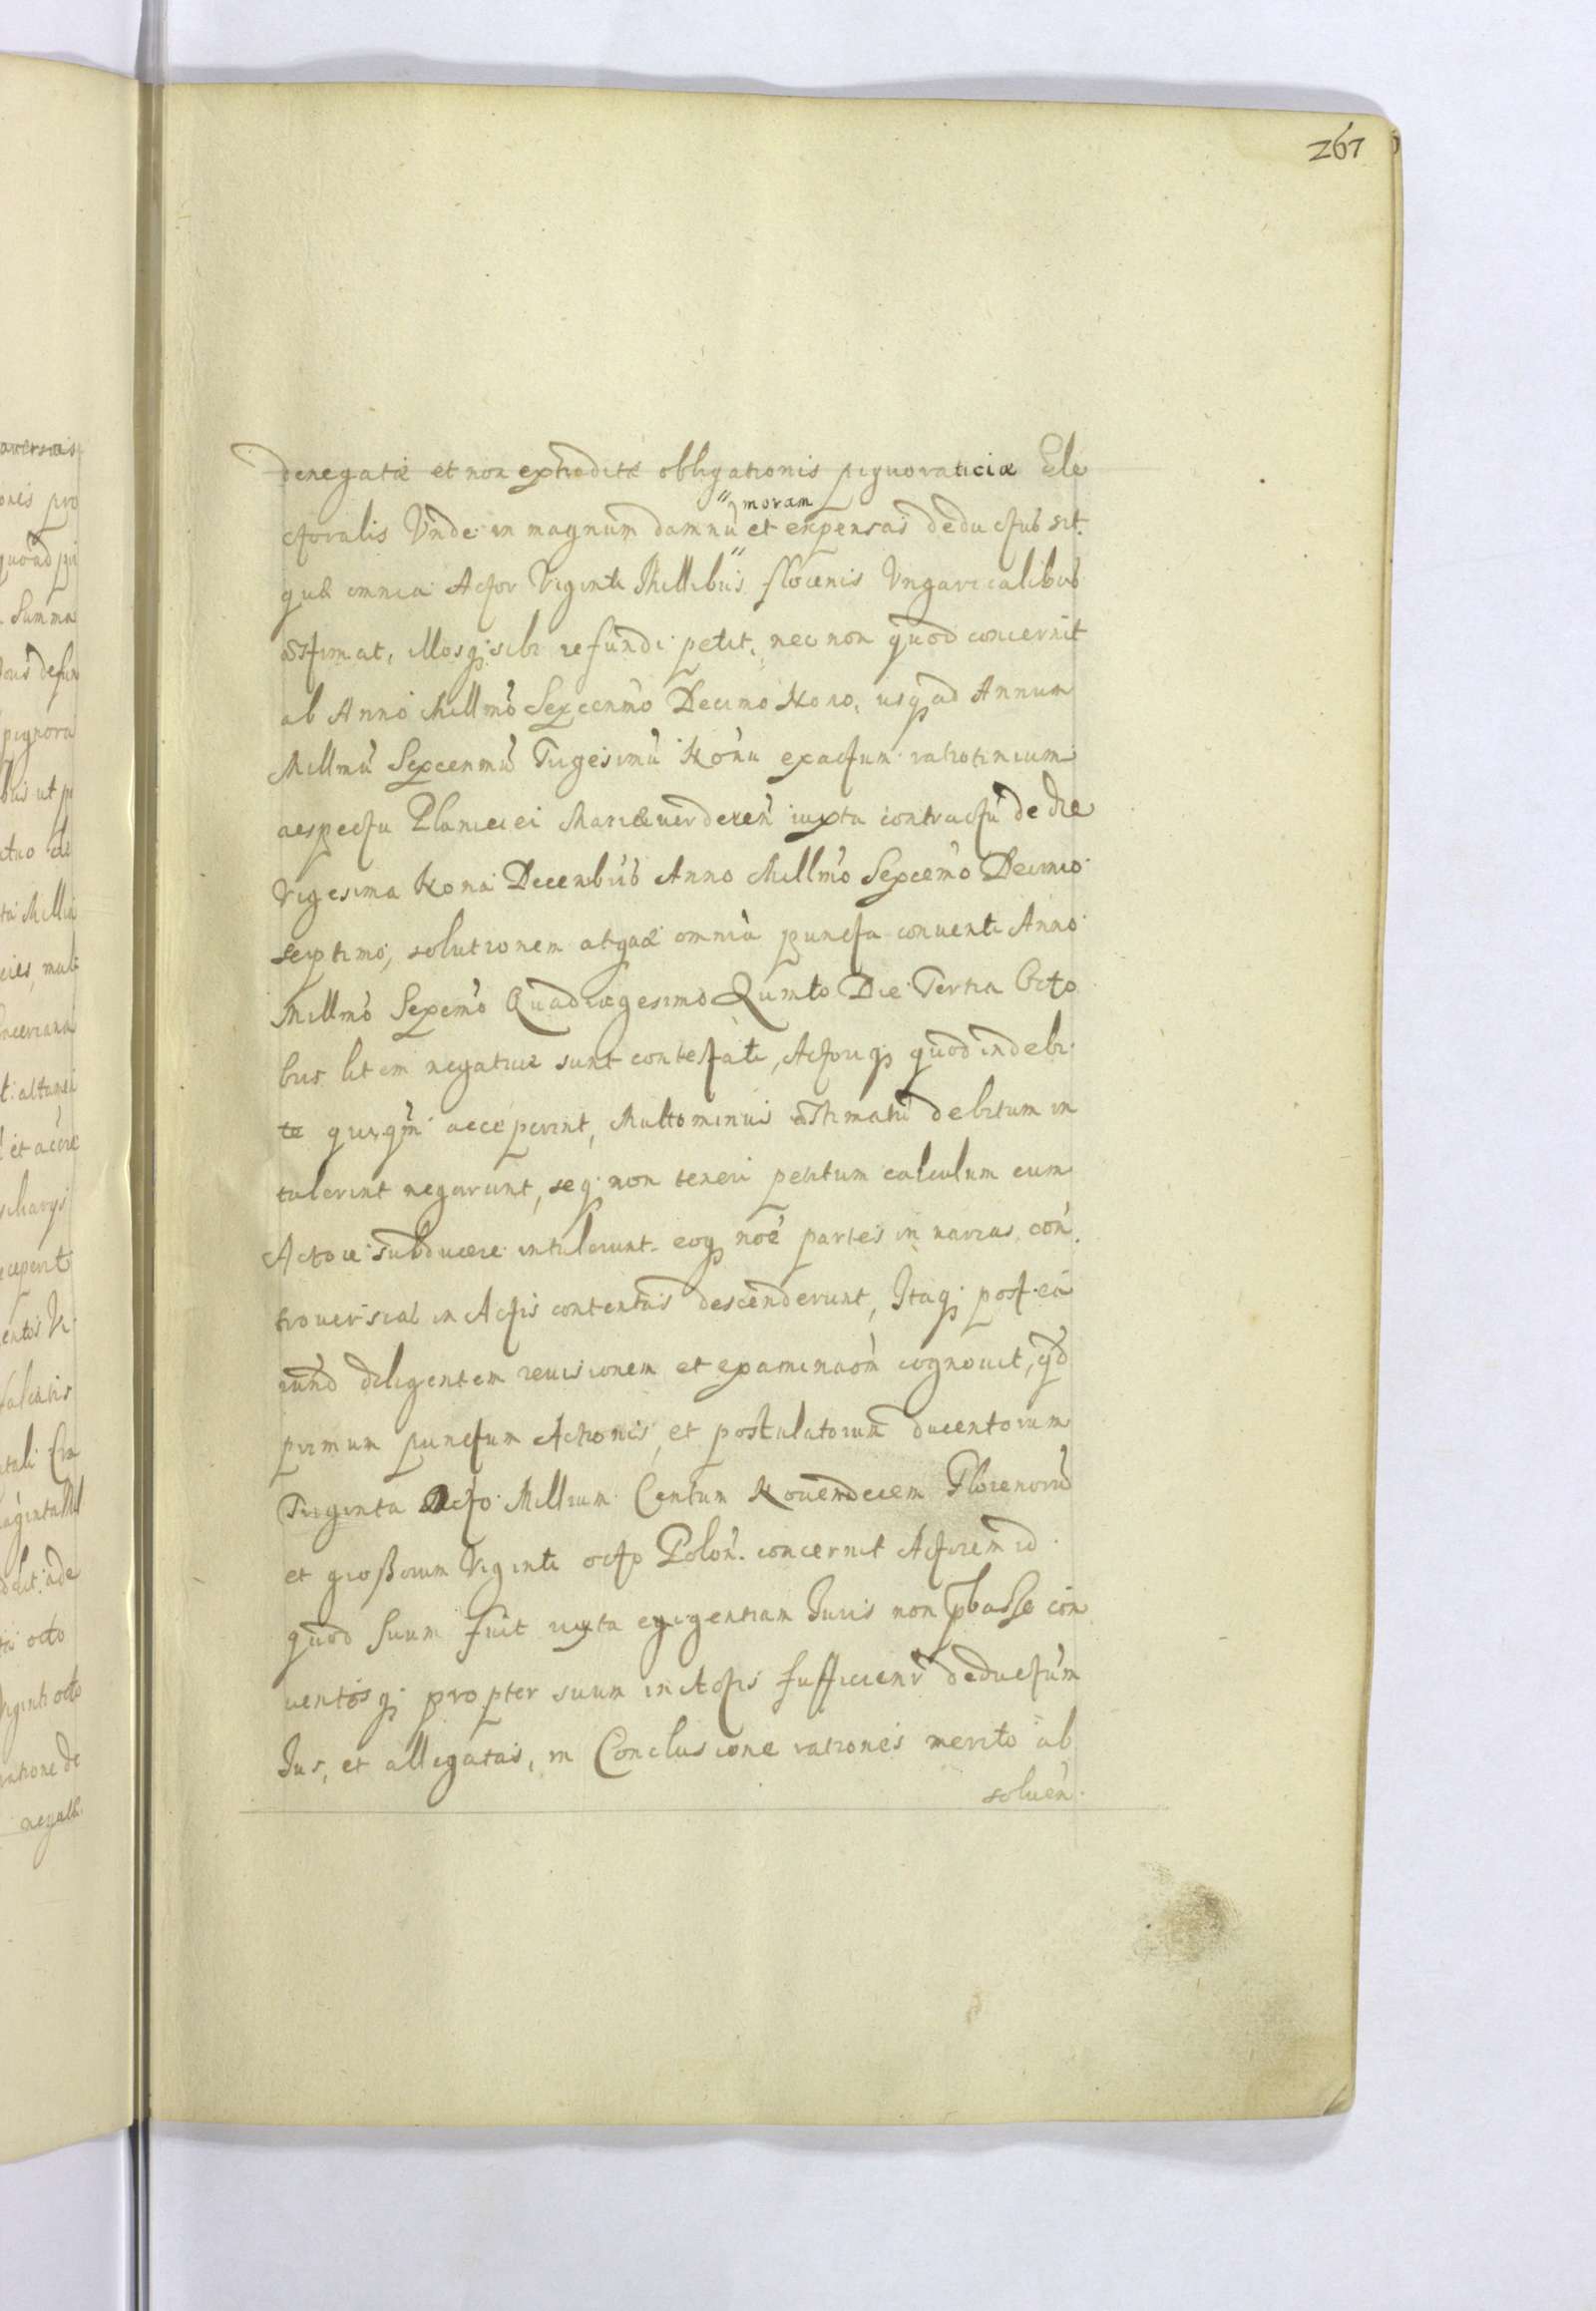 267
denegatæ et non extraditæ obligationis pignoraticiæ Ele
ctoralis Unde in magnum damnũ moram et expensas deductus sit.
quæ omnia Actor Viginti Millibus florenis Ungaricalibus
æstimat, illosq; sibi refundi petit, nec non quod concernit
ab Anno Millmo Sexcenmo Decimo Nono, usq; ad Annum
Millmũ Sexcenmũ Trigesimũ Nonũ exactum ratiotinium
respectu Planiciei Mariæuerderen iuxta contractũ de die
Vigesima Nona Decembris Anno Millmo Sexcemo Decimo
septimo, solutionem atque omnia puncta conventi Anno
Millmo Sexcemo Quadragesimo Quinto Die Tertia Octo
bris litem negative sunt contestati, Actoriq; quod indebi
te quicqm acceperint, Multominus æstimatũ debitum in
tulerint negarunt, seq; non teneri petitum calculum cum
Actore subducere intulerunt eoq; noe partes in varias con
troversias in Actis contentas descenderunt, Itaq; post ea
rund diligentem revisionem et examinaom cognovit, qd
primum punctum Actionis, et postulatorum ducentorum
Triginta Octo Millium Centum Novendecem Florenorũ
et großorum Viginti octo Polon. concernit Actorem id
quod suum fuit iuxta exigentiam Iuris non pbasse con
ventosq; propter suum in Actis sufficienr deductum
Ius, et allegatas, in Conclusione rationes merito ab
soluen.